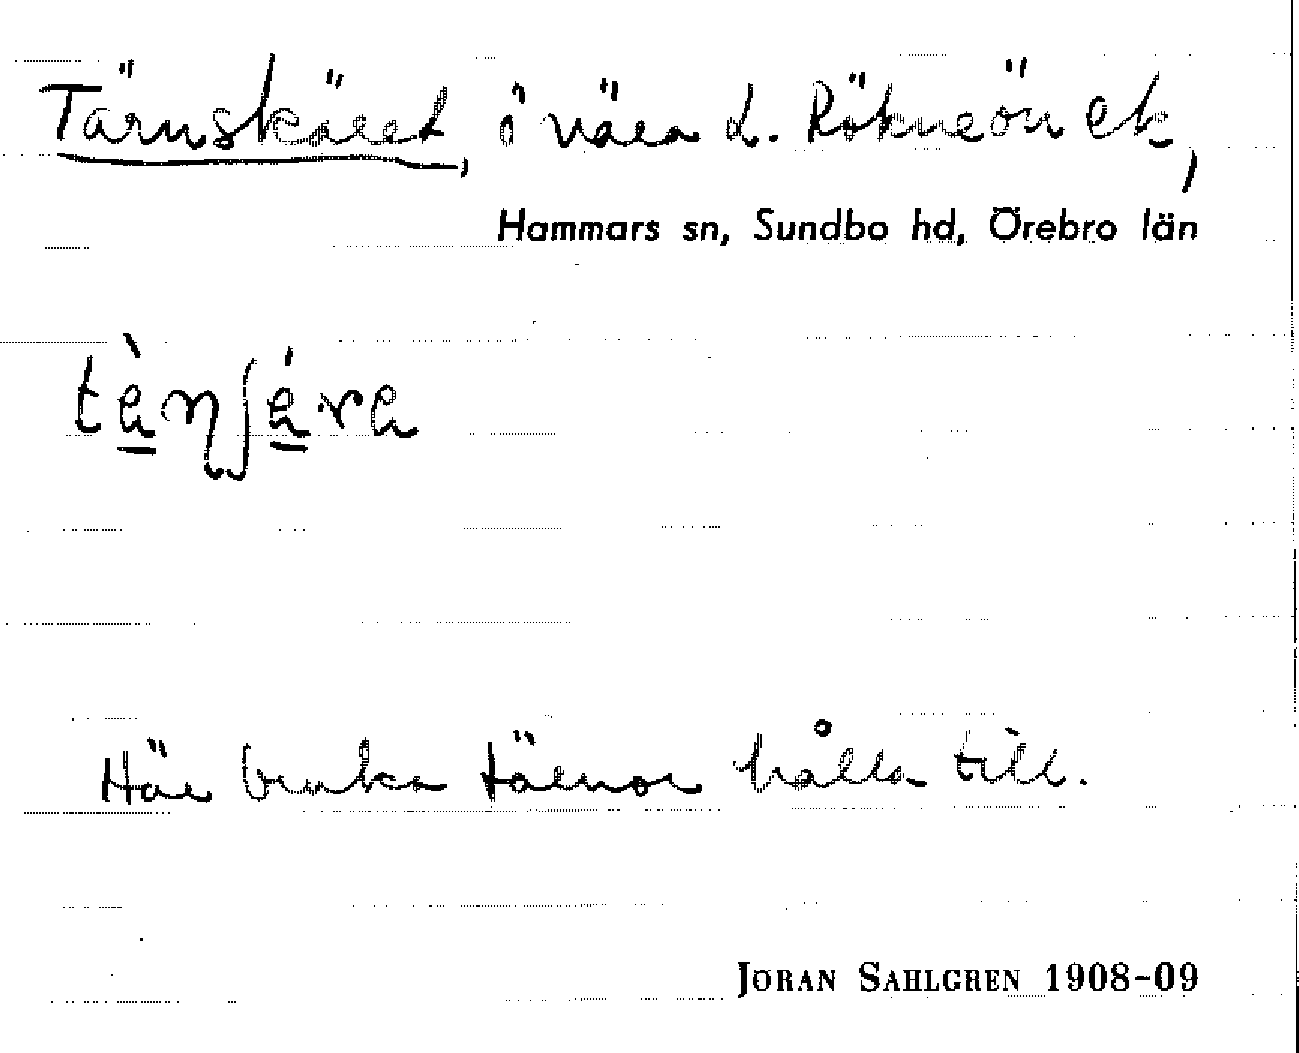 Tärnskäret, ö nära L. Rökneön ek,
Hammars sn, Sundbo hd, Örebro län
tànʃára
Här bruka tärnor hålla till.
JORAN SAHLGREN 1908-09